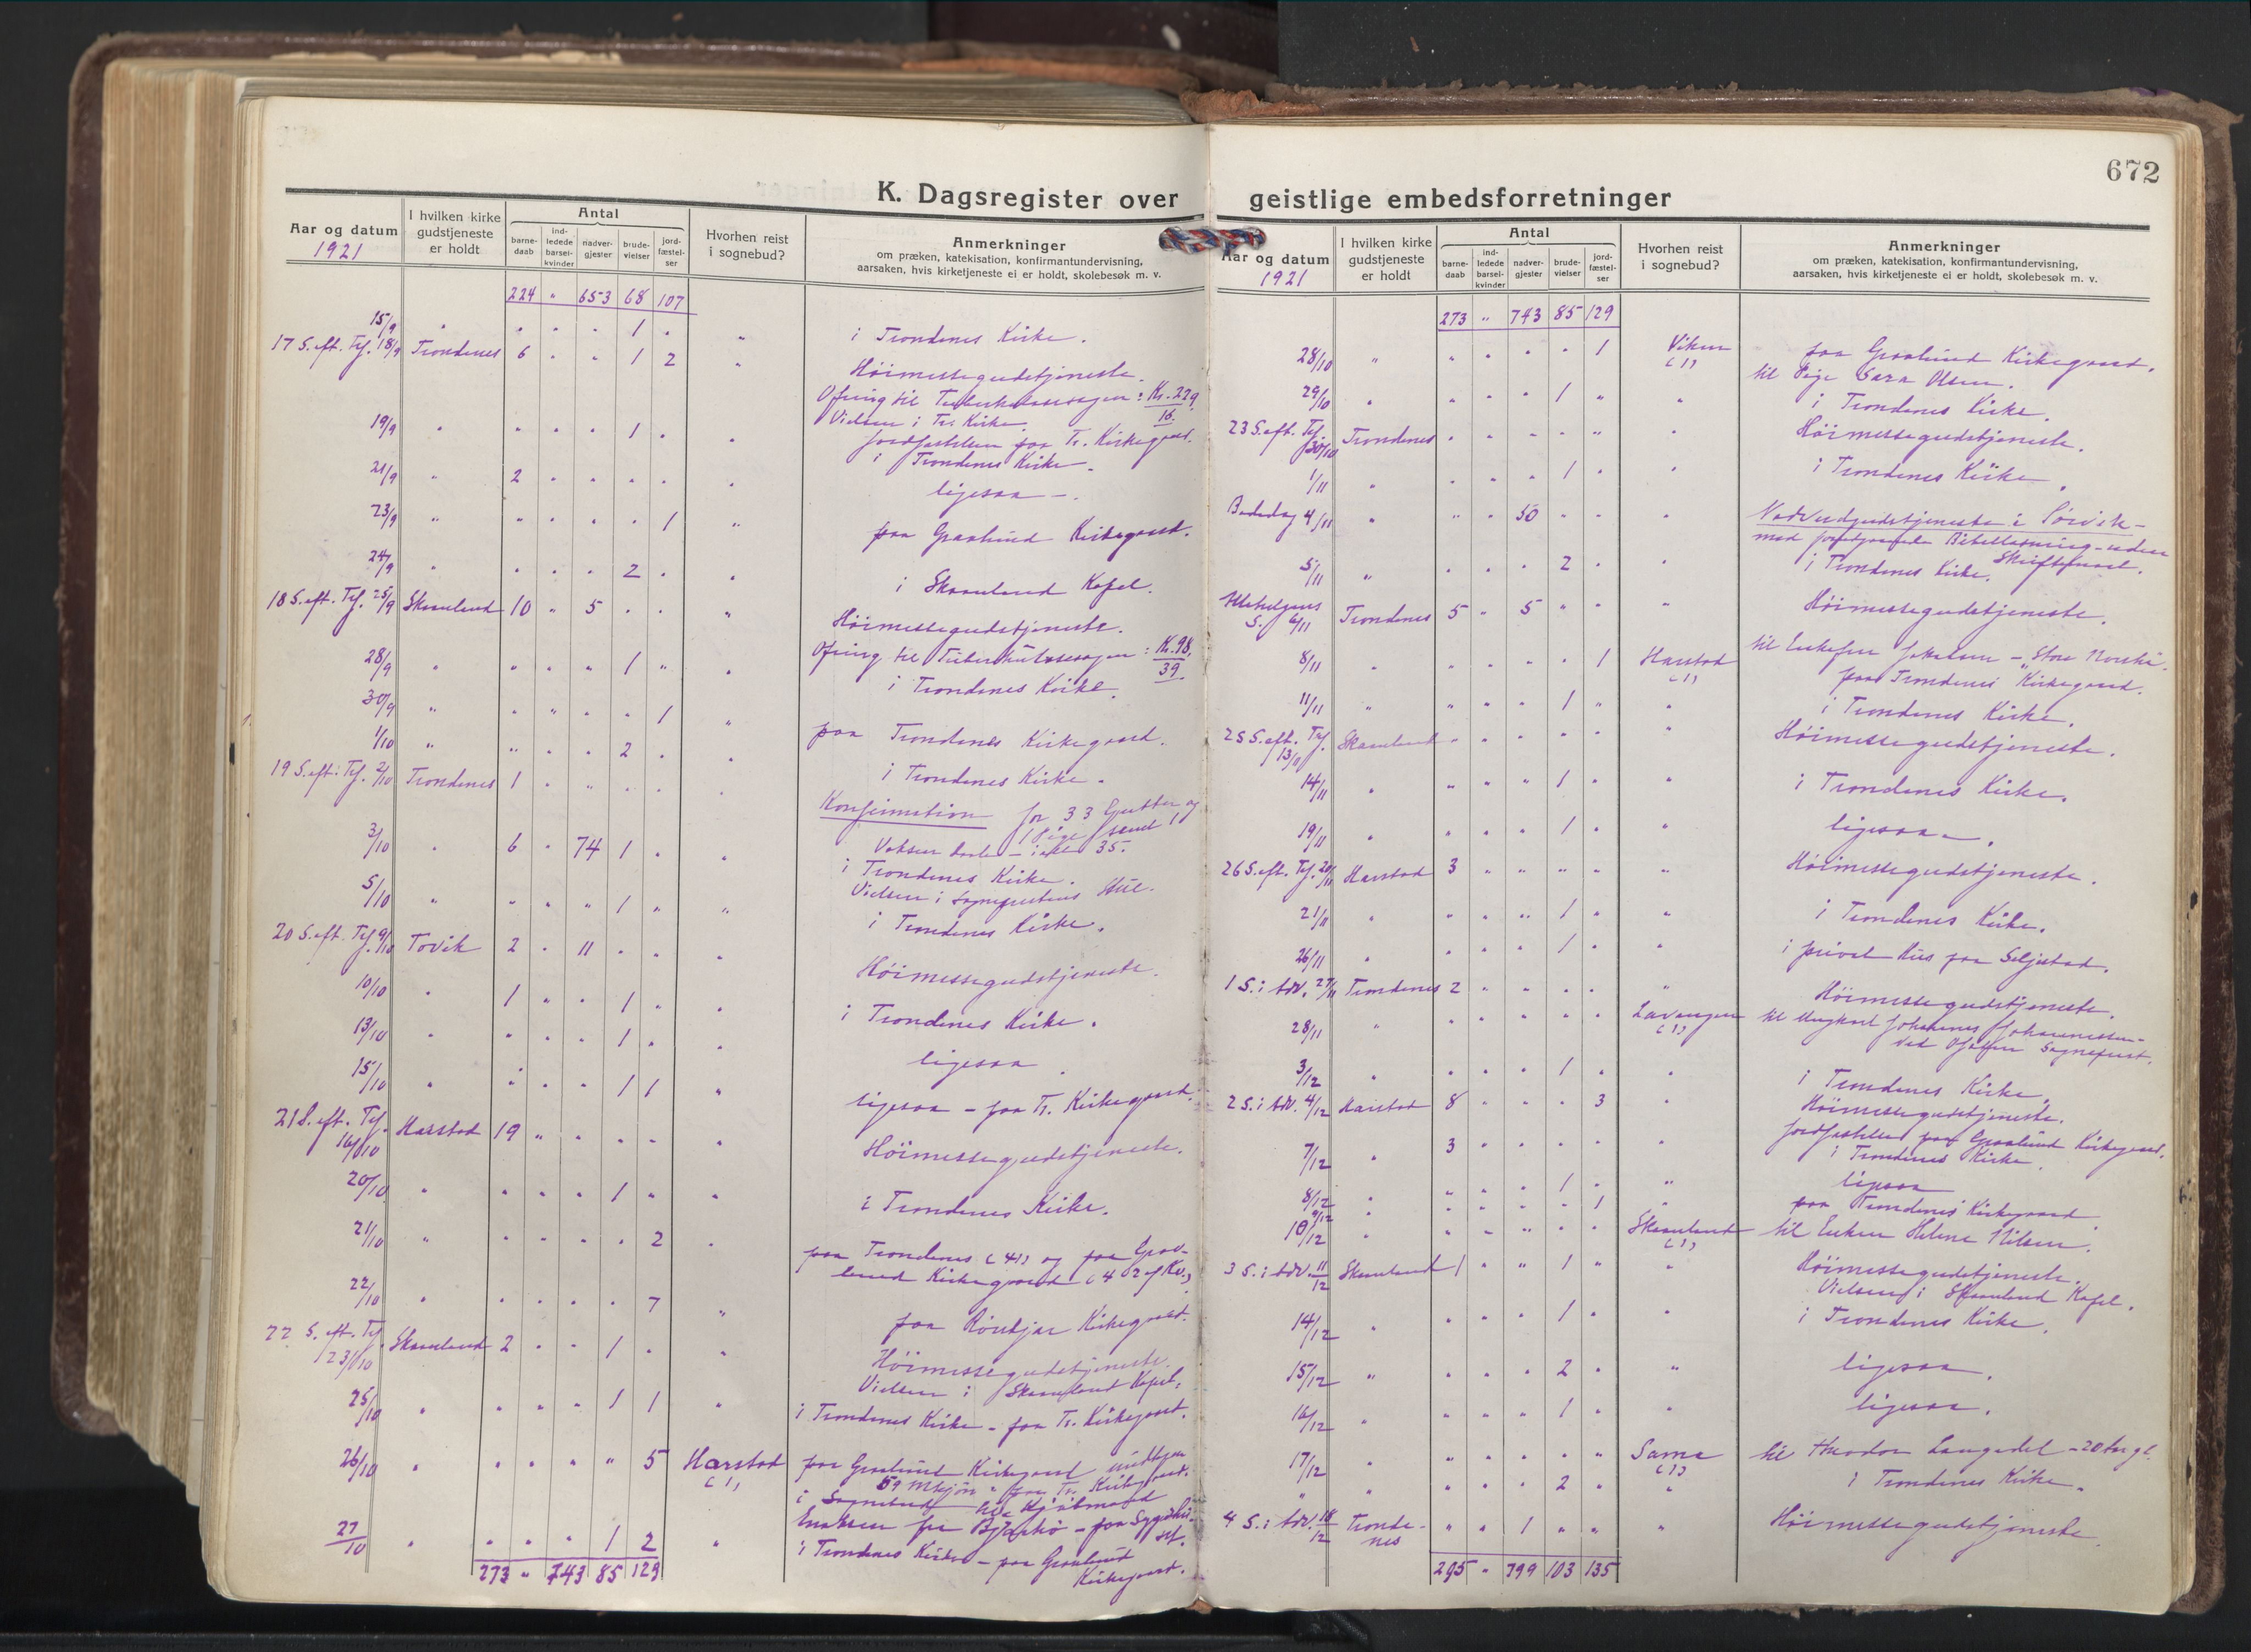 672
K. Dagsregister over geistlige embedsforretninger
Aar og datum 1921
I hvilken kirke gudstjeneste er holdt
Antal
barne-daab
ind-ledede barsel-kvinder
nadver-gjester
brude-vielser
jord-fæstel-ser
Hvorhen reist i sognebud?
Anmerkninger
om præken, katekisation, konfirmantundervisning,
aarsaken, hvis kirketjeneste ei er holdt, skolebesøk m. v.
224 " 653 68 107
15/9 " " " " 1 " " i Trondenes Kirke.
17 S. eft. Tr. 18/9 Trondenes 6 " " 1 2 " Höimessegudstjeneste.
Ofring til Tuberkulosesagen: Kr. 229
16.
Vielsen i Tr. Kirke.
Jordfæstelsen paa Tr. Kirkegaard.
19/9 " " " " 1 " " i Trondenes Kirke.
21/9 " 2 " " " " " ligesaa -.
23/9 " " " " " 1 " paa Graalund Kirkegaard.
24/9 " " " " 2 " " i Skaanland Kapel.
18 S. eft. Tr. 25/9 Skaanland 10 " 5 " " " Höimessegudstjeneste.
Ofring til Tuberkulosesagen: Kr. 98.
39.
28/9 " " " " 1 " " i Trondenes Kirke.
30/9 " " " " " 1 " paa Trondenes Kirkegaard.
1/10 " " " " 2 " " i Trondenes Kirke.
19 S. eft. Tr. 2/10 Trondenes 1 " " " " " Konfirmation for 33 Gutter og
1 Pige samt 1
Voksen - ialt 35.
3/10 " 6 " 74 1 " " i Trondenes Kirke.
Vielsen i Sogneprestens Stue.
5/10 " " " " 1 " " i Trondenes Kirke.
20 S. eft. Tr. 9/10 Tovik 2 " 11 " " " Höimessegudstjeneste.
10/10 " 1 " " 1 " " i Trondenes Kirke.
13/10 " " " " 1 " " ligesaa.
15/10 " " " " 1 1 " ligesaa - paa Tr. Kirkegaard.
21 S. eft. Tr. 16/10 Harstad 19 " " " " " Höimessegudstjeneste.
20/10 " " " " 1 " " i Trondenes Kirke.
21/10 " " " " " 2 " paa Trondenes (41) og paa Graa-
lund Kirkegaard
22/10 " " " " " 7 " paa Kirkegaard.
22 S. eft. Tr. 23/10 Skaanland 2 " " 1 " " Höimessegudstjeneste.
Vielsen i Skaanland Kapel.
25/10 " " " " 1 1 " i Trondenes Kirke - paa Tr. Kirkegaard.
26/10 " " " " " 5 Harstad (1) paa Graalund Kirkegaard
paa Tr. Kirkegaard.
i Sognebud til
fra Bjarkö - paa Sygehu-
set.
27/10 " " " " 1 2 " i Trondenes Kirke - paa Graalund
Kirkegaard.
273 " 743 85 129
Aar og datum 1921
I hvilken kirke gudstjeneste er holdt
Antal
barne-daab
ind-ledede barsel-kvinder
nadver-gjester
brude-vielser
jord-fæstel-ser
Hvorhen reist i sognebud?
Anmerkninger
om præken, katekisation, konfirmantundervisning,
aarsaken, hvis kirketjeneste ei er holdt, skolebesøk m. v.
273 " 743 85 129
28/10 " " " " " 1 Viken (1) paa Graalund Kirkegaard.
til Pige Sara Olsen.
29/10 " " " " 1 " " i Trondenes Kirke.
23 S. eft. Tr. 30/10 Trondenes " " " " " " Höimessegudstjeneste.
1/11 " " " " 1 " " i Trondenes Kirke.
Bededag 4/11 " " " 50 " " " Nadverdgudstjeneste i Sörvik -
med Bibellæsning - uden
Skriftemaal.
5/11 " " " " 2 " " i Trondenes Kirke.
Allehelgens S. 6/11 Trondenes 5 " 5 " " " Höimessegudstjeneste.
8/11 " " " " " 1 Harstad (1) til Enkefru - Store
paa Trondenes Kirkegaard.
11/11 " " " " 1 " " i Trondenes Kirke.
25 S. eft. Tr. 13/11 Skaanland " " " " " " Höimessegudstjeneste.
14/11 " " " " 1 " " i Trondenes Kirke.
19/11 " " " " 1 " " ligesaa -.
26 S. eft. Tr. 20/11 Harstad 3 " " " " " Höimessegudstjeneste.
21/11 " " " " 1 " " i Trondenes Kirke.
26/11 " " " " 1 " " i privat Hus paa Seljestad.
1 S. i Adv. 27/11 Trondenes 2 " " " " " Höimessegudstjeneste.
28/11 " " " " " " Lavangen (1) til Ungkarl Johannes Johannessen -
ved Sogneprest.
3/12 " " " " 1 " " i Trondenes Kirke.
2 S. i Adv. 4/12 Harstad 8 " " " 3 " Höimessegudstjeneste.
Jordfæstelser paa Graalund Kirkegaard.
7/12 " 3 " " " " " i Trondenes Kirke.
8/12 " " " " 1 " " ligesaa
9/12 " " " " " 1 " paa Trondenes Kirkegaard.
10/12 " " " " " " Skaanland (1) til Enken Helene Nilsen.
3 S. i Adv. 11/12 Skaanland 1 " " 1 " " Höimessegudstjeneste.
Vielsen i Skaanland Kapel.
14/12 " " " " 1 " " i Trondenes Kirke.
15/12 " " " " 2 " " ligesaa.
16/12 " " " " 1 " " ligesaa.
17/12 " " " " " " Sama (1) til Theodor Langedal - 20 Aar gl.
" " " " " 2 " " i Trondenes Kirke.
4 S. i Adv. 18/12 Tronde-
nes " " 1 " " " Höimessegudstjeneste.
295 " 799 103 135